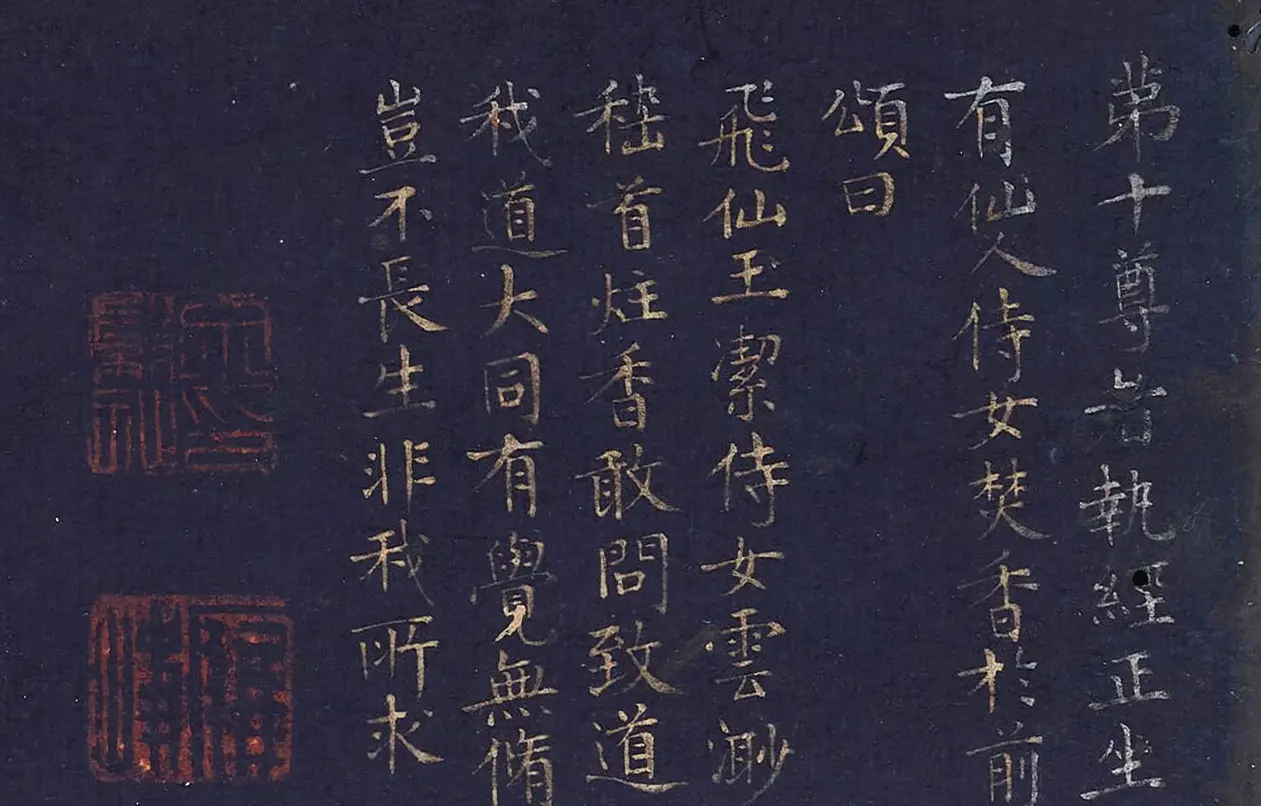 苐十尊者執經正坐
有仙人侍女焚香於前
頌曰
飛仙玉潔侍女雲渺
稽首炷香敢問致道
我道大同有覺無脩
豈不長生非我所求